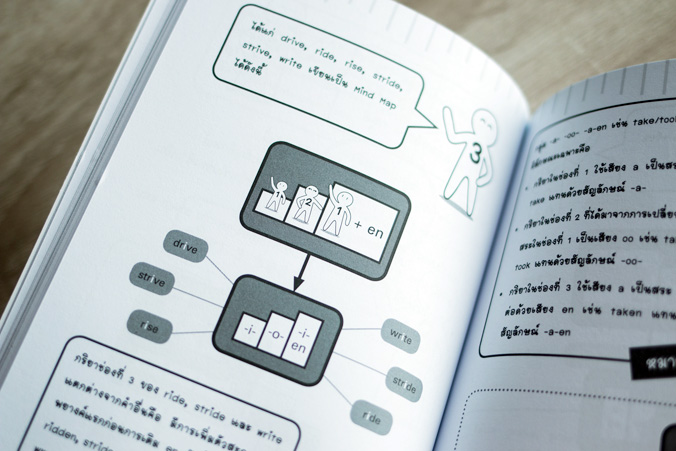 ได้แก่ drive, ride, rise, stride,
strive, write เขียนเป็น Mind Map
ได้ดังนี้
3
1 2 1 + en
drive
strive
rise
-i- -o- -i-
en
write
stride
ride
กริยาช่องที่ 3 ของ ride, stride และ write
แตกต่างจากคำอื่นคือ มีการเพิ่มตัวสะ
พยางค์แรกก่อนการเติม
ridden,
-a- -oo- -a-en เช่น take/took
• กริยาในช่องที่ 1 ใช้เสียง a เป็นสระ
take แทนด้วยสัญลักษณ์ -a-
• กริยาในช่องที่ 2 ที่ได้มาจากการเปลี่ยน
สระในช่องที่ 1 เป็นเสียง oo เช่น
took แทนด้วยสัญลักษณ์ -oo-
• กริยาในช่องที่ 3 ใช้เสียง a เป็นสระ
ต่อด้วยเสียง en เช่น taken แทน
สัญลักษณ์ -a-en
หมา